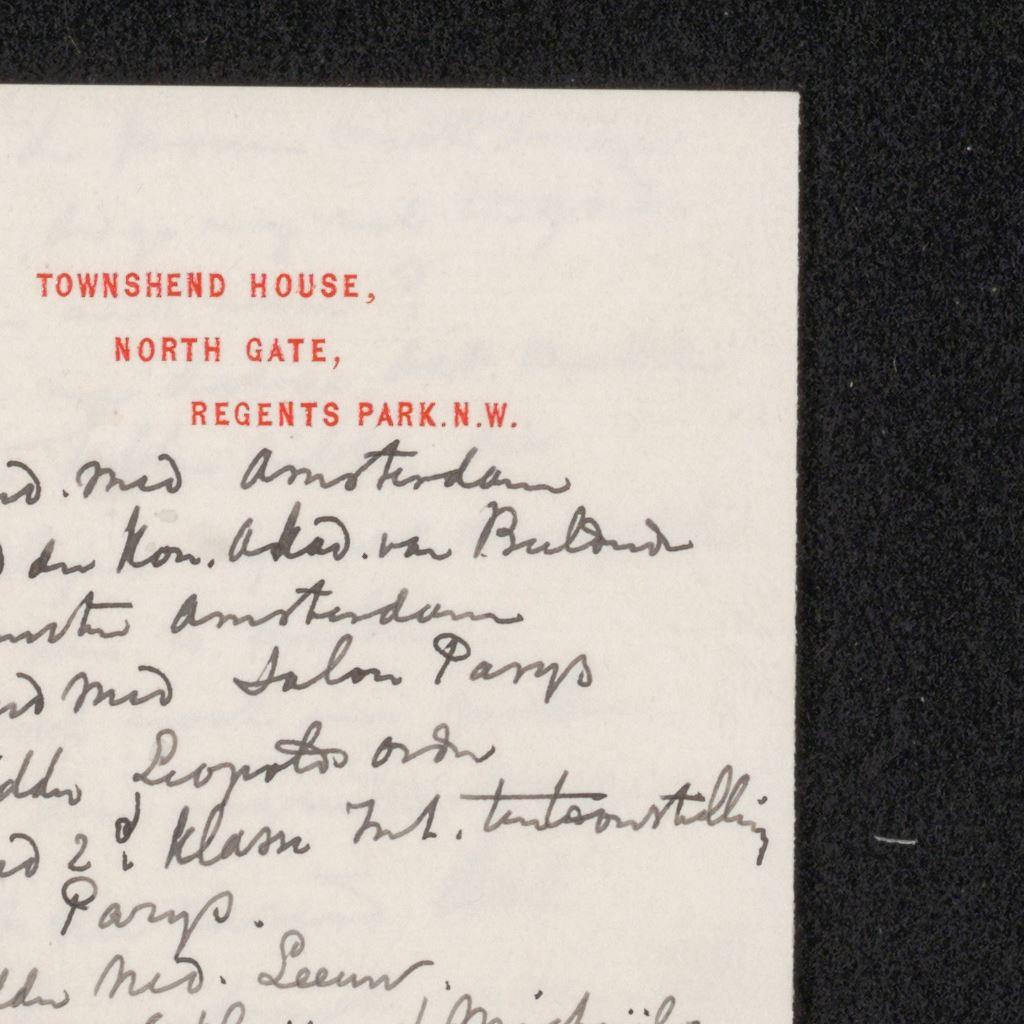 TOWNSHEND HOUSE,
NORTH GATE,
REGENTS PARK. N.W.
med Amsterdam
den Kon. Akad. van Beeldende
Amsterdam
med Salon Parys
Leopolds orde
2d klasse Int. tentoonstelling
Parys.
Ned. Leeuw.